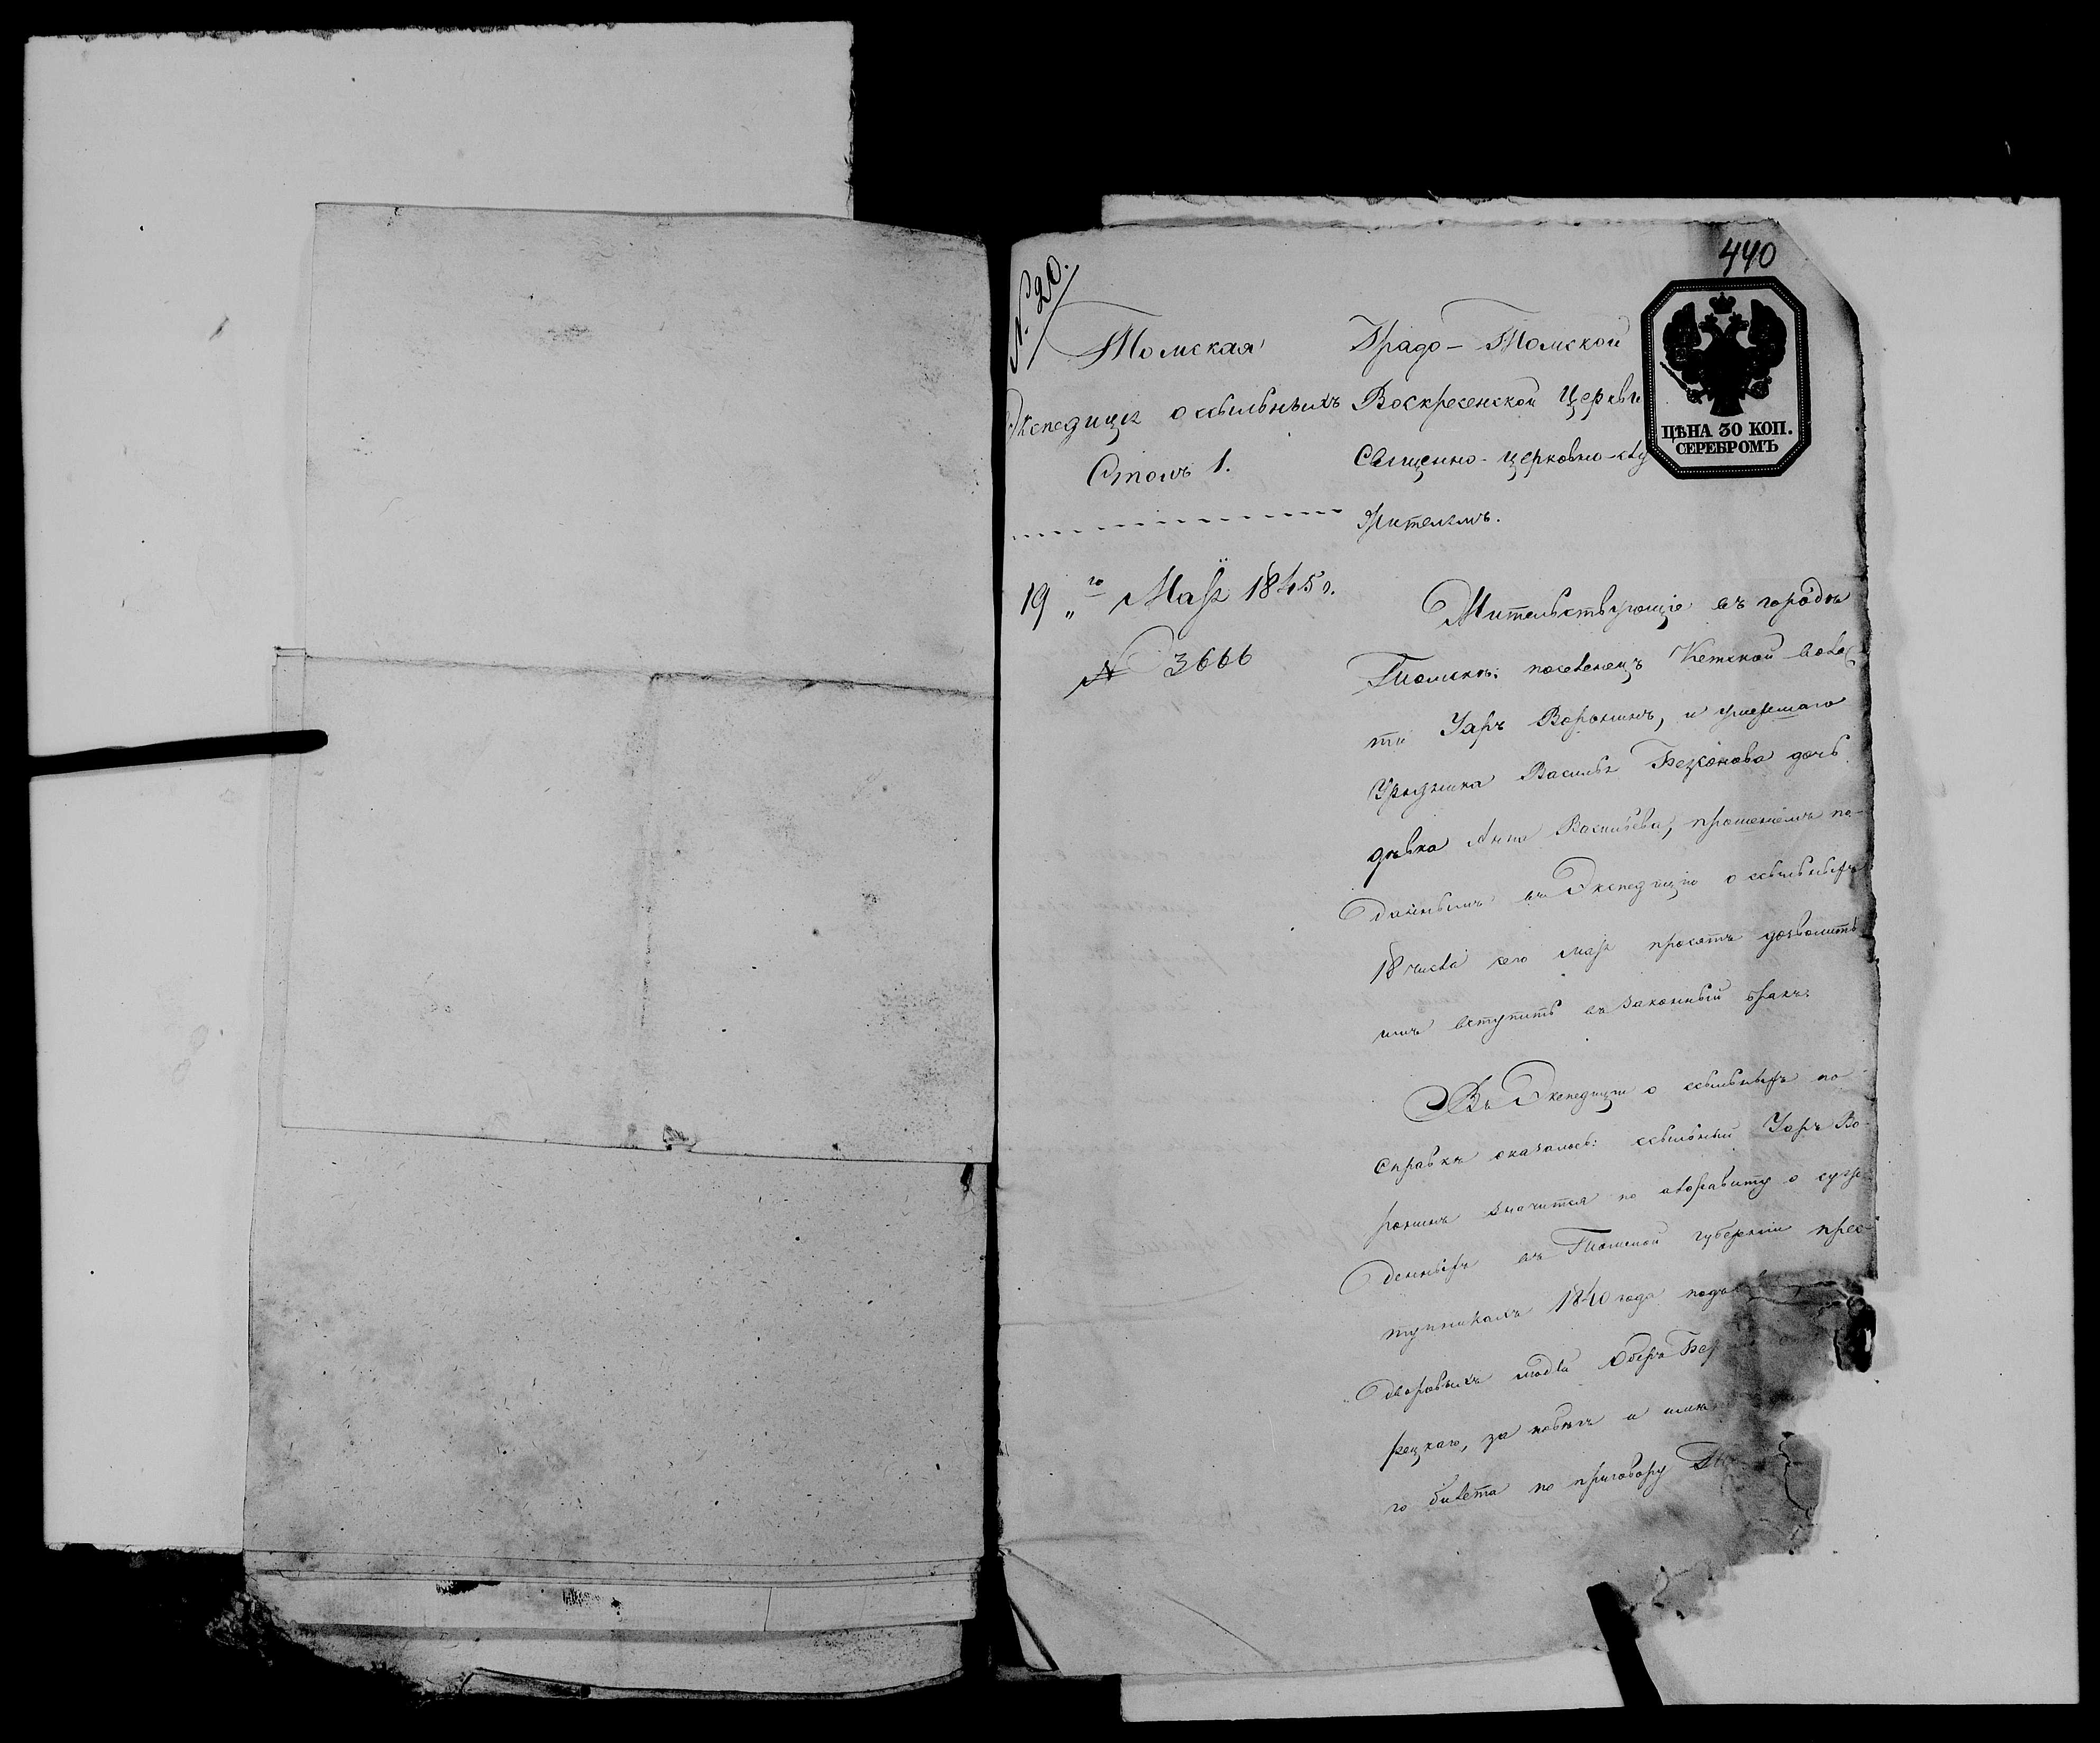 440
N. 20.
ЦѢНА 30 КОП.
СЕРЕБРОМЪ
Томская
Экспедицiя о ссыльныхъ
Столъ 1.
19го Маiя 1845 г.
№ 3666
Градо-Томской
Воскресенской Церкви
Священно-церковно-слу
жителямъ.
Жительствующiе въ городѣ
Томскѣ: поселенецъ Кетской волос
ти Уаръ Воронинъ, и умершаго
Урядника Василья дочь
дѣвка Анна Васильева, прошенiемъ по-
даннымъ въ Экспедицiю о ссыльныхъ
18 числа сего маiя просятъ дозволить
имъ вступить въ законный бракъ:
Въ Экспедицiи о ссыльныхъ по
справкѣ оказалось: ссыльный Уаръ Во-
ронинъ значится по алфавиту о сужде
денныхъ въ Томской губернiи прес-
тупникахъ 1840 года
дворовыхъ людей
рецкаго, за побѣгъ и
го билета по приговору